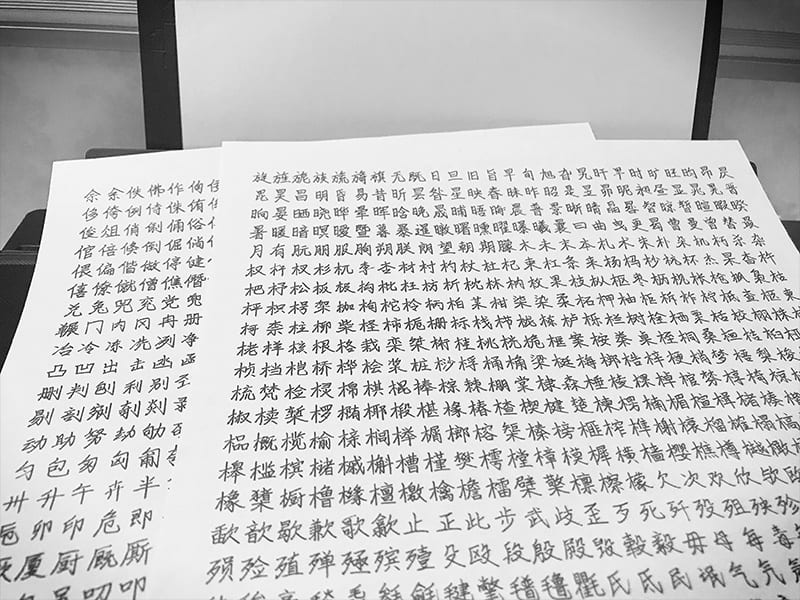 佘余佚佛作佝
侈侉例侍侏侑
俊俎俏俐俑俗
倌倍倏倒倔倘
偎偏偕做停健
僖僚僦僧僬僭
兑兔兕兖党兜
冁冂内冈冉册
冶冷冻冼冽净
凸凹出击凼函
删判刨利别
剔剖剜剞剡
动助努劫劬
勺包匆匈匍
卅升午卉半
卮卯印危即
厦厨厩厮
叨叩
旋旌旎族旒旖旗无既日旦旧旨早旬旭旮旯旰旱时旷旺昀昂昃
昆昊昌明昏易昔昕昙昝星映春昧昨昭是昱昴昵昶昼显晁晃晋
晌晏晒晓晔晕晖晗晚晟晡晤晦晨普景晰晴晶晷智晾暂暄暇暌
暑暖暗暝暧暨暮暴暹暾曙曛曜曝曦曩曰曲曳更曷曹曼曾替最
月有朊朋服朐朔朕朗望朝期朦木未末本札术朱朴朵机朽杀杂
权杆杈杉杌李杏材村杓杖杜杞束杠条来杨杩杪杭杯杰杲杳杵
杷杼松板极构枇枉枋析枕林枘枚果枝枞枢枣枥枧枨枪枫枭枯
枰枳枵架枷枸柁柃柄柏某柑柒染柔柘柙柚柜柝柞柠柢查柩柬
柯柰柱柳柴柽柿栀栅标栈栉栊栋栌栎栏树栓栖栗栝校栩株栲
栳样核根格栽栾桀桁桂桃桄桅框案桉桊桌桎桐桑桓桔桕
桢档桤桥桦桧桨桩桫桴桶桷梁梃梅梆梏梓梗梢梦梧梨梭
梳梵检棂棉棋棍棒棕棘棚棠棣森棰棱棵棹棺棼椁椅椋
椒椟椠椤椭椰椴椹椽椿楂楔楗楚楝楞楠楣楦楫楮楷
榀概榄榆榇榈榉榍榔榕榘榛榜榧榨榫榭榱榴榷榻槁
槔槛槟槠槭槲槽槿樊樗樘樟模樨横樯樱樵樽樾橄橇
橡橥橱橹橼檀檄檎檐檑檗檠檩檫檬欠次欢欣欤欧
歃歆歇歉歌歙止正此步武歧歪歹死歼殁殂殃殄
殒殓殖殚殛殡殪殳殴段殷殿毁毂毅毋母每毒
毛毪毯毳毵毹毽氅氆氇氍氏氐民氓气氖